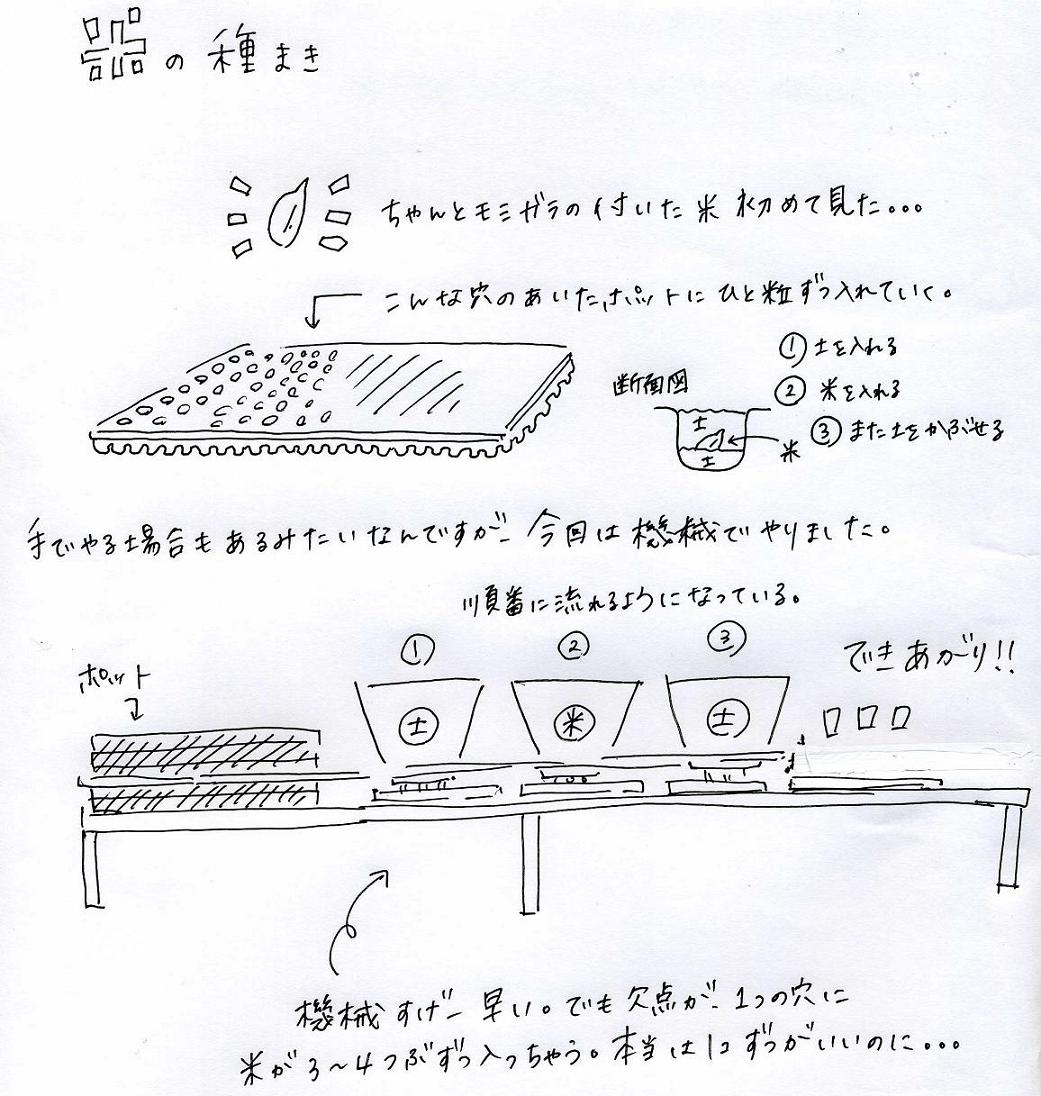 米の種まき
ちゃんとモミガラの付いた米 初めて見た...
こんな穴のあいたポットにひと粒ずつ入れていく。
① 土を入れる
断面図
② 米を入れる
③ また土をかぶせる
土
米
土
手でやる場合もあるみたいなんですが 今回は機械でやりました。
順番に流れるようになっている。
① ② ③
できあがり!!
ポット
土 米 土
機械すげー早い。でも欠点が 1つの穴に
米が3〜4つぶずつ入っちゃう。本当は1コずつがいいのに...